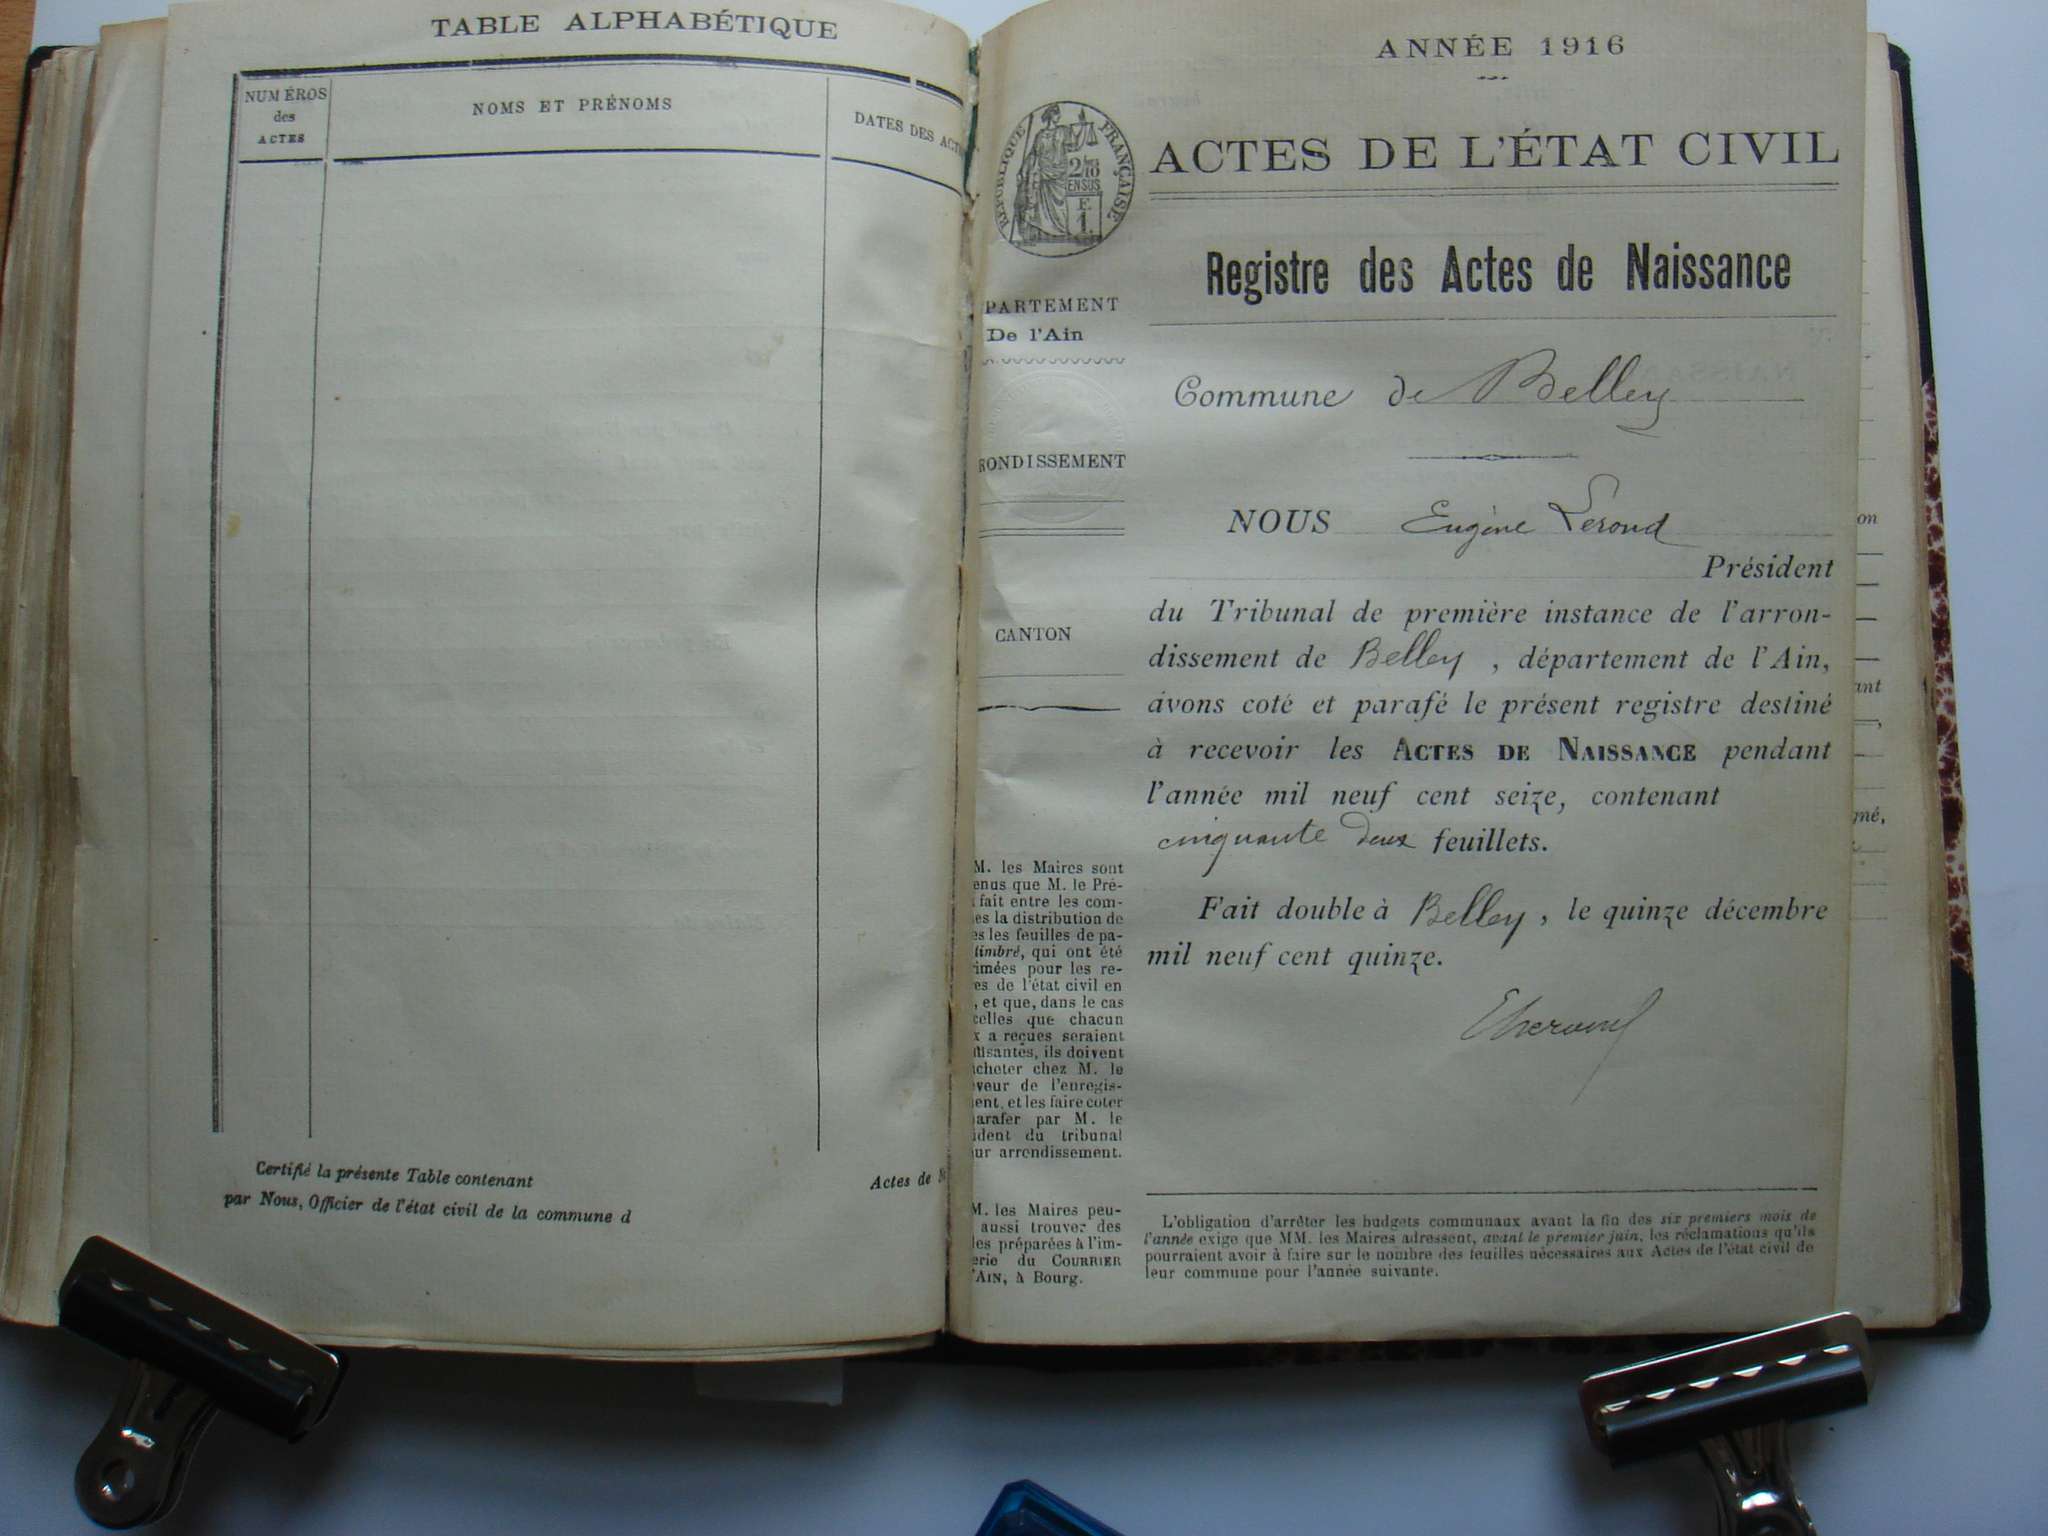 TABLE ALPHABÉTIQUE
NUMÉROS
des
ACTES
NOMS ET PRÉNOMS
DATES DES ACT
Certifié la présente Table contenant
Actes de N
par Nous, Officier de l'état civil de la commune d
ANNÉE 1916
RÉPUBLIQUE FRANÇAISE
2/10
EN SUS
F.
1.
ACTES DE L'ÉTAT CIVIL
Registre des Actes de Naissance
PARTEMENT
De l'Ain
RONDISSEMENT
CANTON
Commune de Belley
NOUS Eugène Lerond
Président
du Tribunal de première instance de l'arron-
dissement de Belley, département de l'Ain,
avons coté et parafé le présent registre destiné
à recevoir les ACTES DE NAISSANCE pendant
l'année mil neuf cent seize, contenant
cinquante deux feuillets.
Fait double à Belley, le quinze décembre
mil neuf cent quinze.
M. les Maires sont
enus que M. le Pré-
fait entre les com-
es la distribution de
es les feuilles de pa-
timbré, qui ont été
imées pour les re-
es de l'état civil en
, et que, dans le cas
celles que chacun
x a reçues seraient
ffisantes, ils doivent
cheter chez M. le
eveur de l'enregis-
ent, et les faire coter
arafer par M. le
ident du tribunal
ur arrondissement.
M. les Maires peu-
aussi trouver des
les préparées à l'im-
erie du COURRIER
'AIN, à Bourg.
L'obligation d'arrêter les budgets communaux avant la fin des six premiers mois de
l'année exige que MM. les Maires adressent, avant le premier juin, les réclamations qu'ils
pourraient avoir à faire sur le nombre des feuilles nécessaires aux Actes de l'état civil de
leur commune pour l'année suivante.
on
ant
gné,